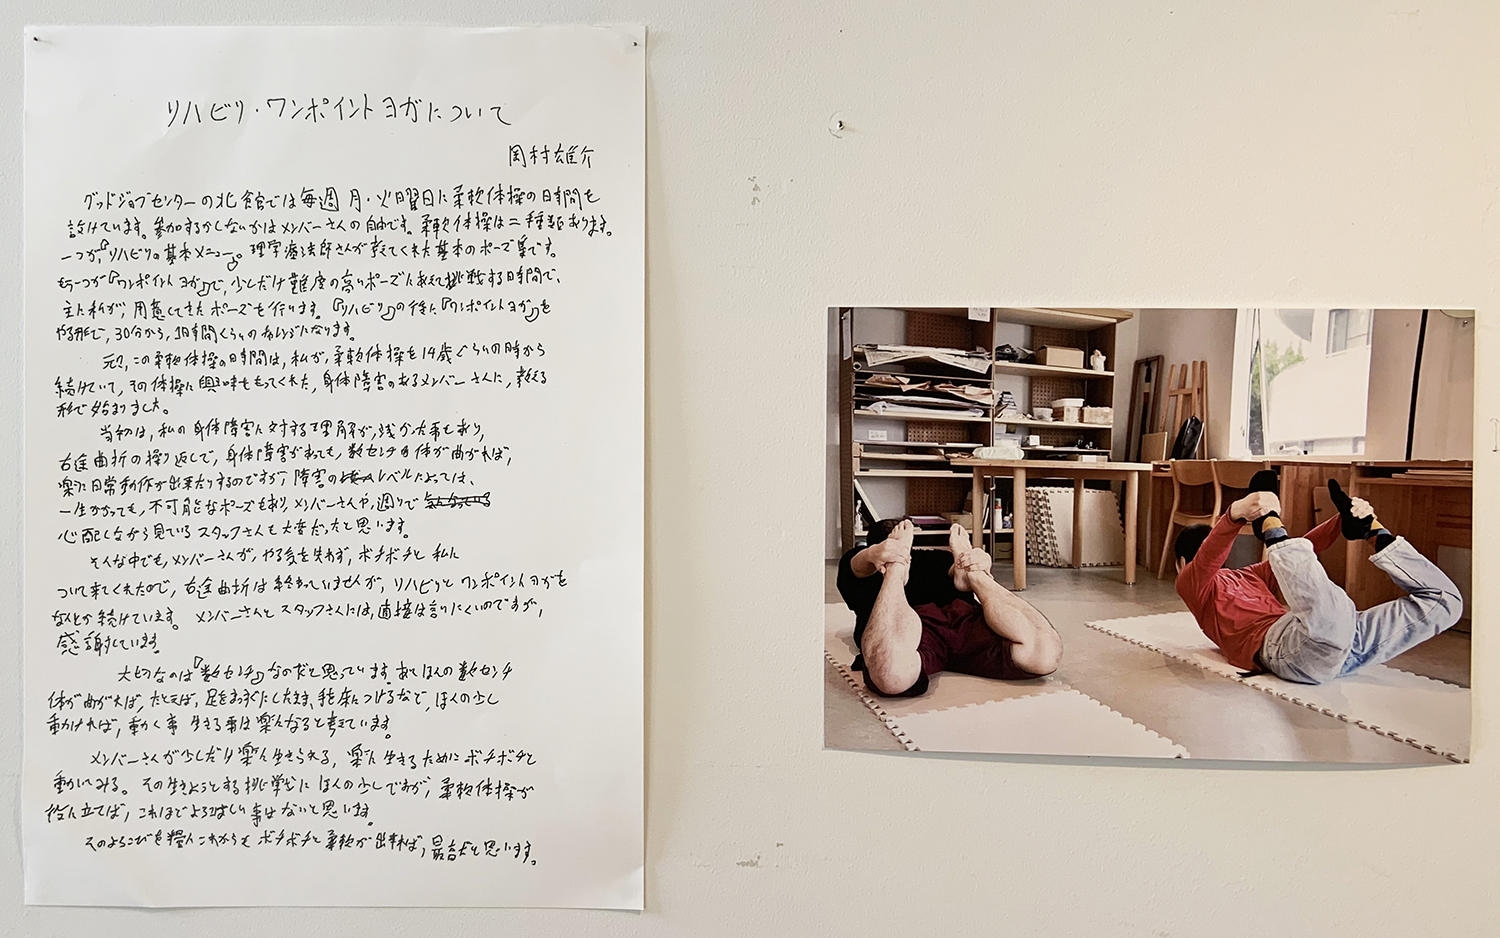 リハビリ・ワンポイントヨガについて
岡村雄介
グッドジョブセンターの北館では毎週 月・火曜日に柔軟体操の日時間を
設けています。参加するかしないかはメンバーさんの自由です。柔軟体操は二種類あります。
一つが、『リハビリの基本メニュー』。理学療法師さんが教えてくれた基本のポーズ集です。
もう一つが『ワンポイントヨガ』で、少しだけ難度の高いポーズにあえて挑戦する時間で、
主に私が、用意してきたポーズを行います。『リハビリ』の後に『ワンポイントヨガ』を
やる形で、30分から、1時間くらいのカレンジになります。
元々、この柔軟体操の時間は、私が、柔軟体操を14歳ぐらいの時から
続けていて、その体操に興味をもってくれた、身体障害のあるメンバーさんに、教える
形で始まりました。
当初は、私の身体障害に対する理解が、浅かった事も有り、
右往曲折の繰り返しで、身体障害があっても、数センチ体が曲がれば、
楽に日常動作が出来たりするのですが、障害のレベルによっては、
一生かかっても、不可能なポーズも有り、メンバーさんや、週りで
心配しながら見ているスタッフさんも大変だったと思います。
そんな中でも、メンバーさんが、やる気を失わず、ボチボチと私に
ついて来てくれたので、右往曲折は終わっていませんが、リハビリとワンポイントヨガを
なんとか続けています。メンバーさんとスタッフさんには、直接は言いにくいのですが、
感謝しています。
大切なのは『数センチ』なのだと思っています。あとほんの数センチ
体が曲がれば、たとえば、足をまっすぐにしたまま、手を床につけるなど、ほんの少し
動かければ、動く事 生きる事は楽になると考えています。
メンバーさんが少しだけ楽に生きられる、楽に生きるためにボチボチと
動いてみる。その生きようとする挑戦にほんの少しですが、柔軟体操が
役に立てば、これほどよろこばしい事はないと思います。
そのよろこびを糧にこれからもボチボチと柔軟が出来れば、最高だと思います。